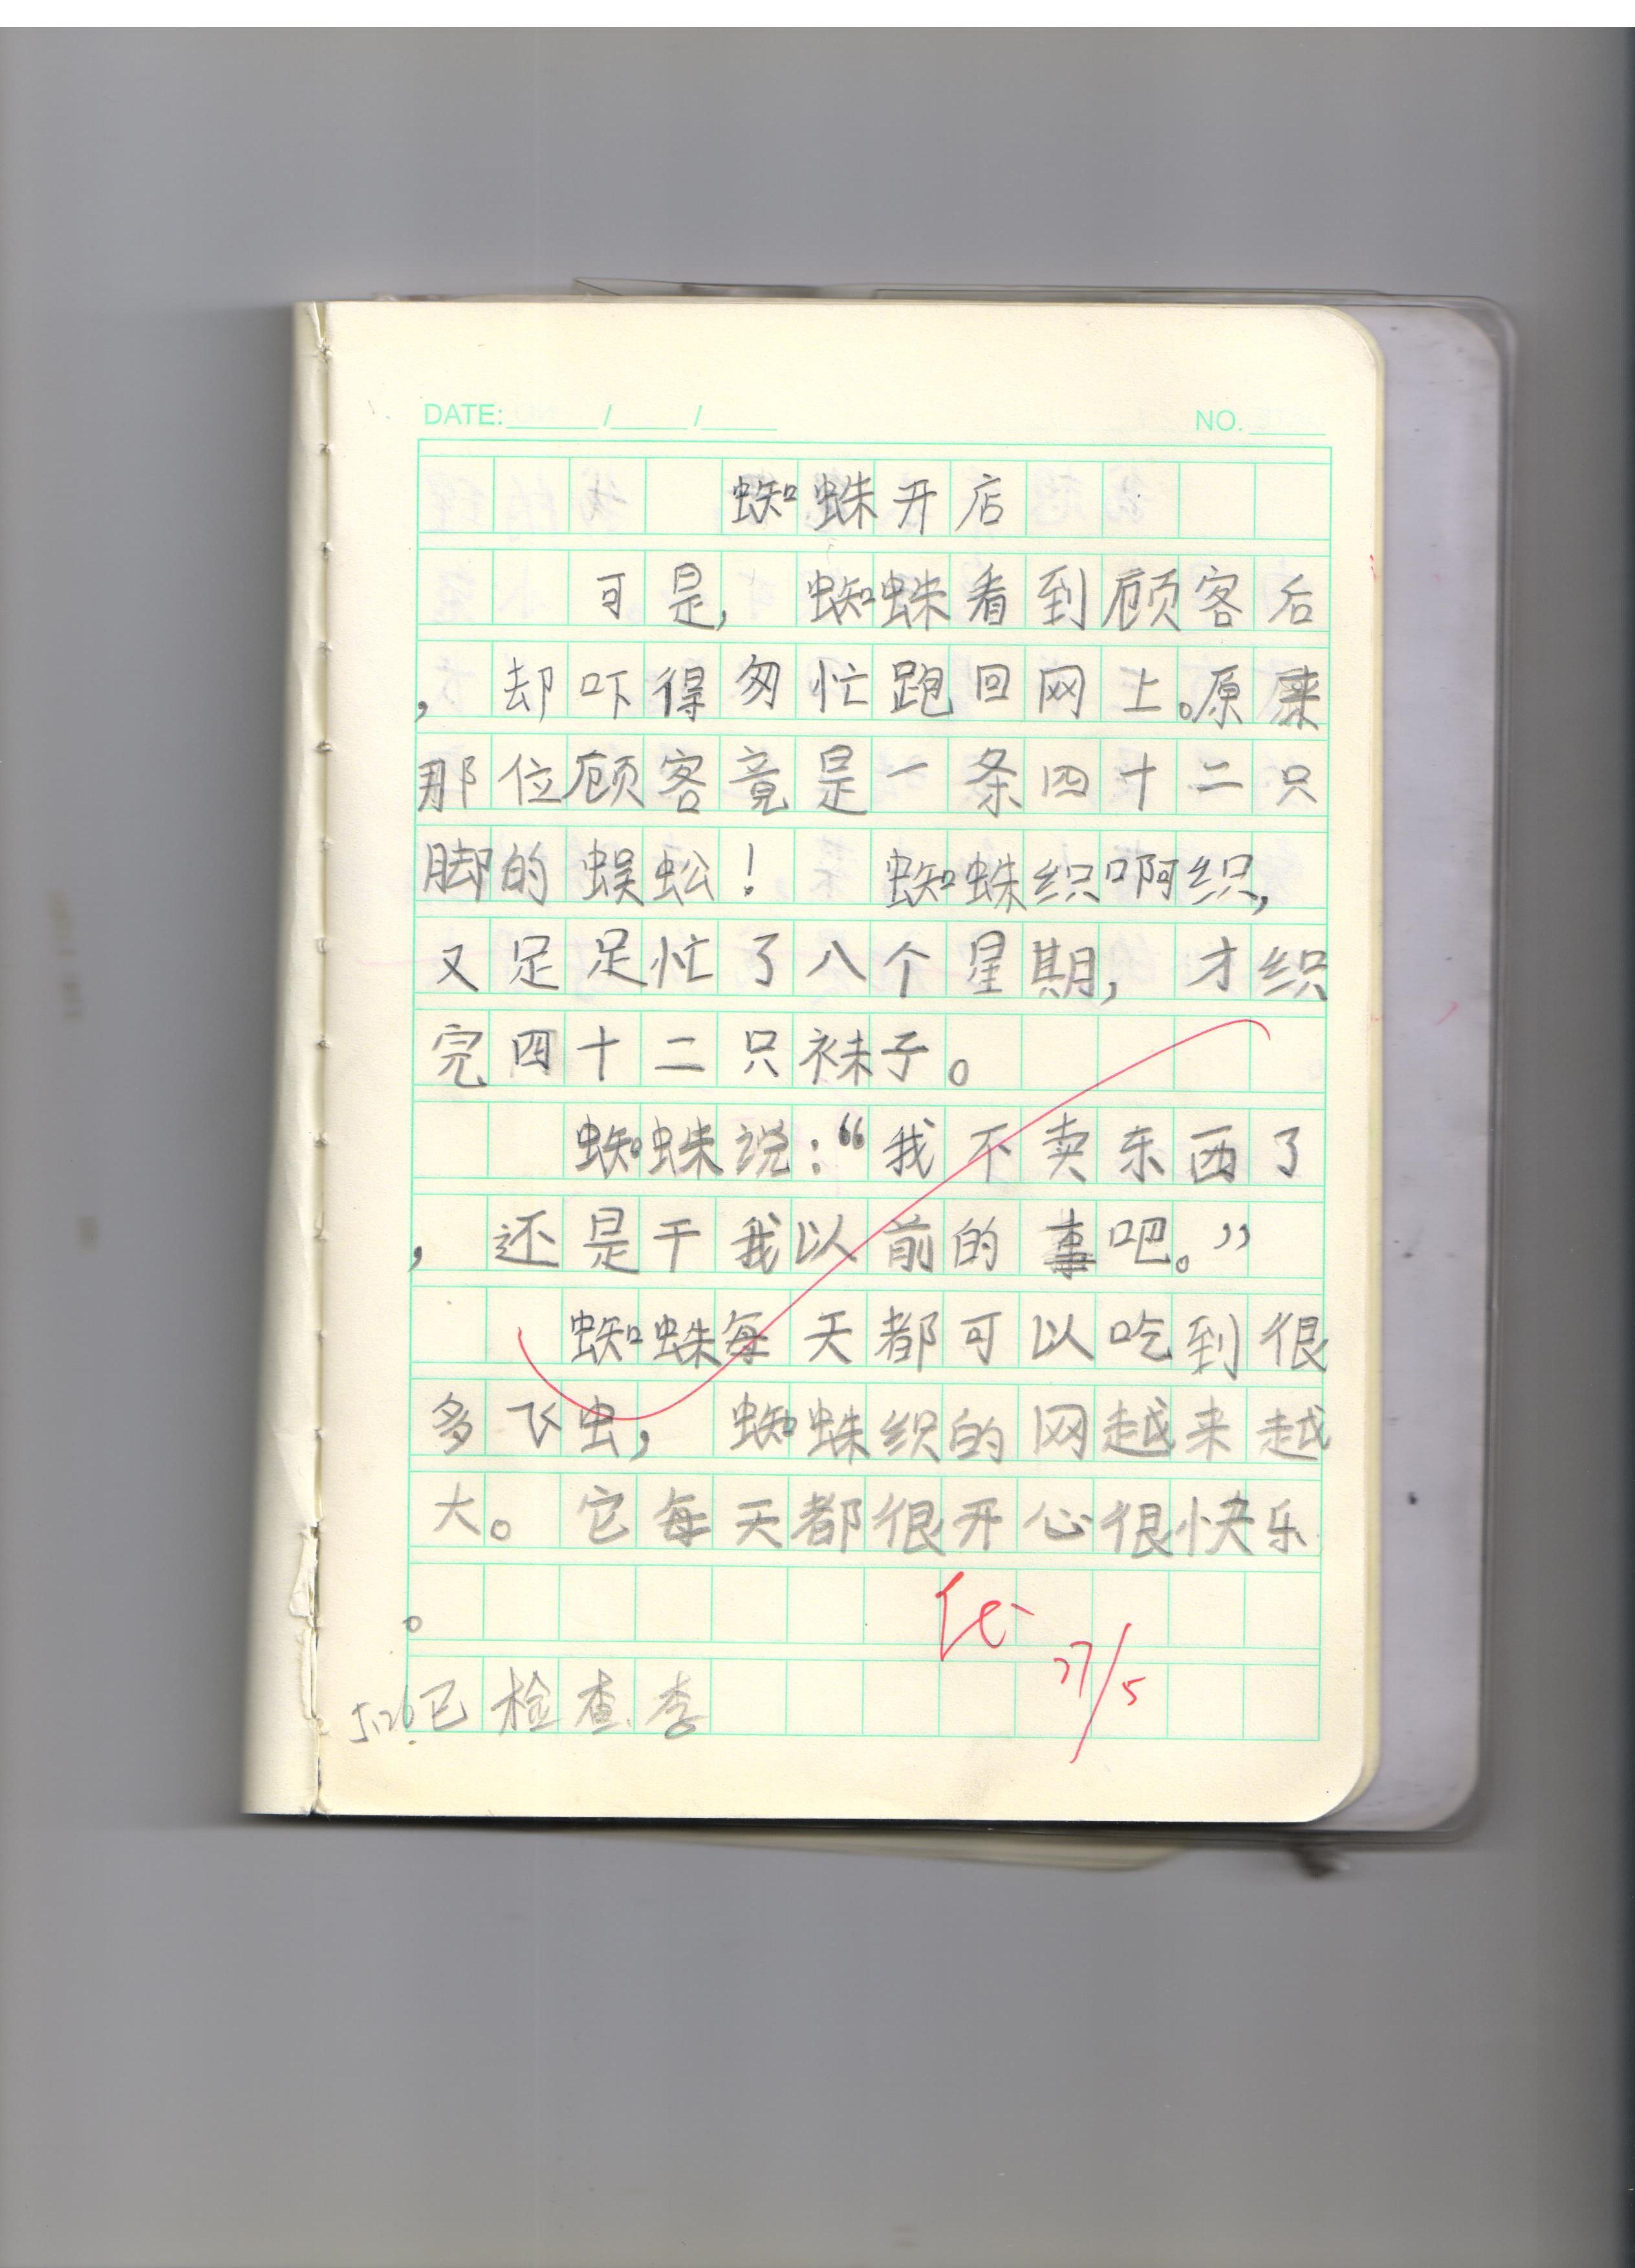 DATE: / / NO.
蜘蛛开店
可是，蜘蛛看到顾客后
，却吓得匆忙跑回网上。原来
那位顾客竟是一条四十二只
脚的蜈蚣！ 蜘蛛织啊织，
又足足忙了八个星期，才织
完四十二只袜子。
蜘蛛说：“我不卖东西了
，还是干我以前的事吧。”
蜘蛛每天都可以吃到很
多飞虫，蜘蛛织的网越来越
大。它每天都很开心很快乐
。
27/5
5.26已检查李